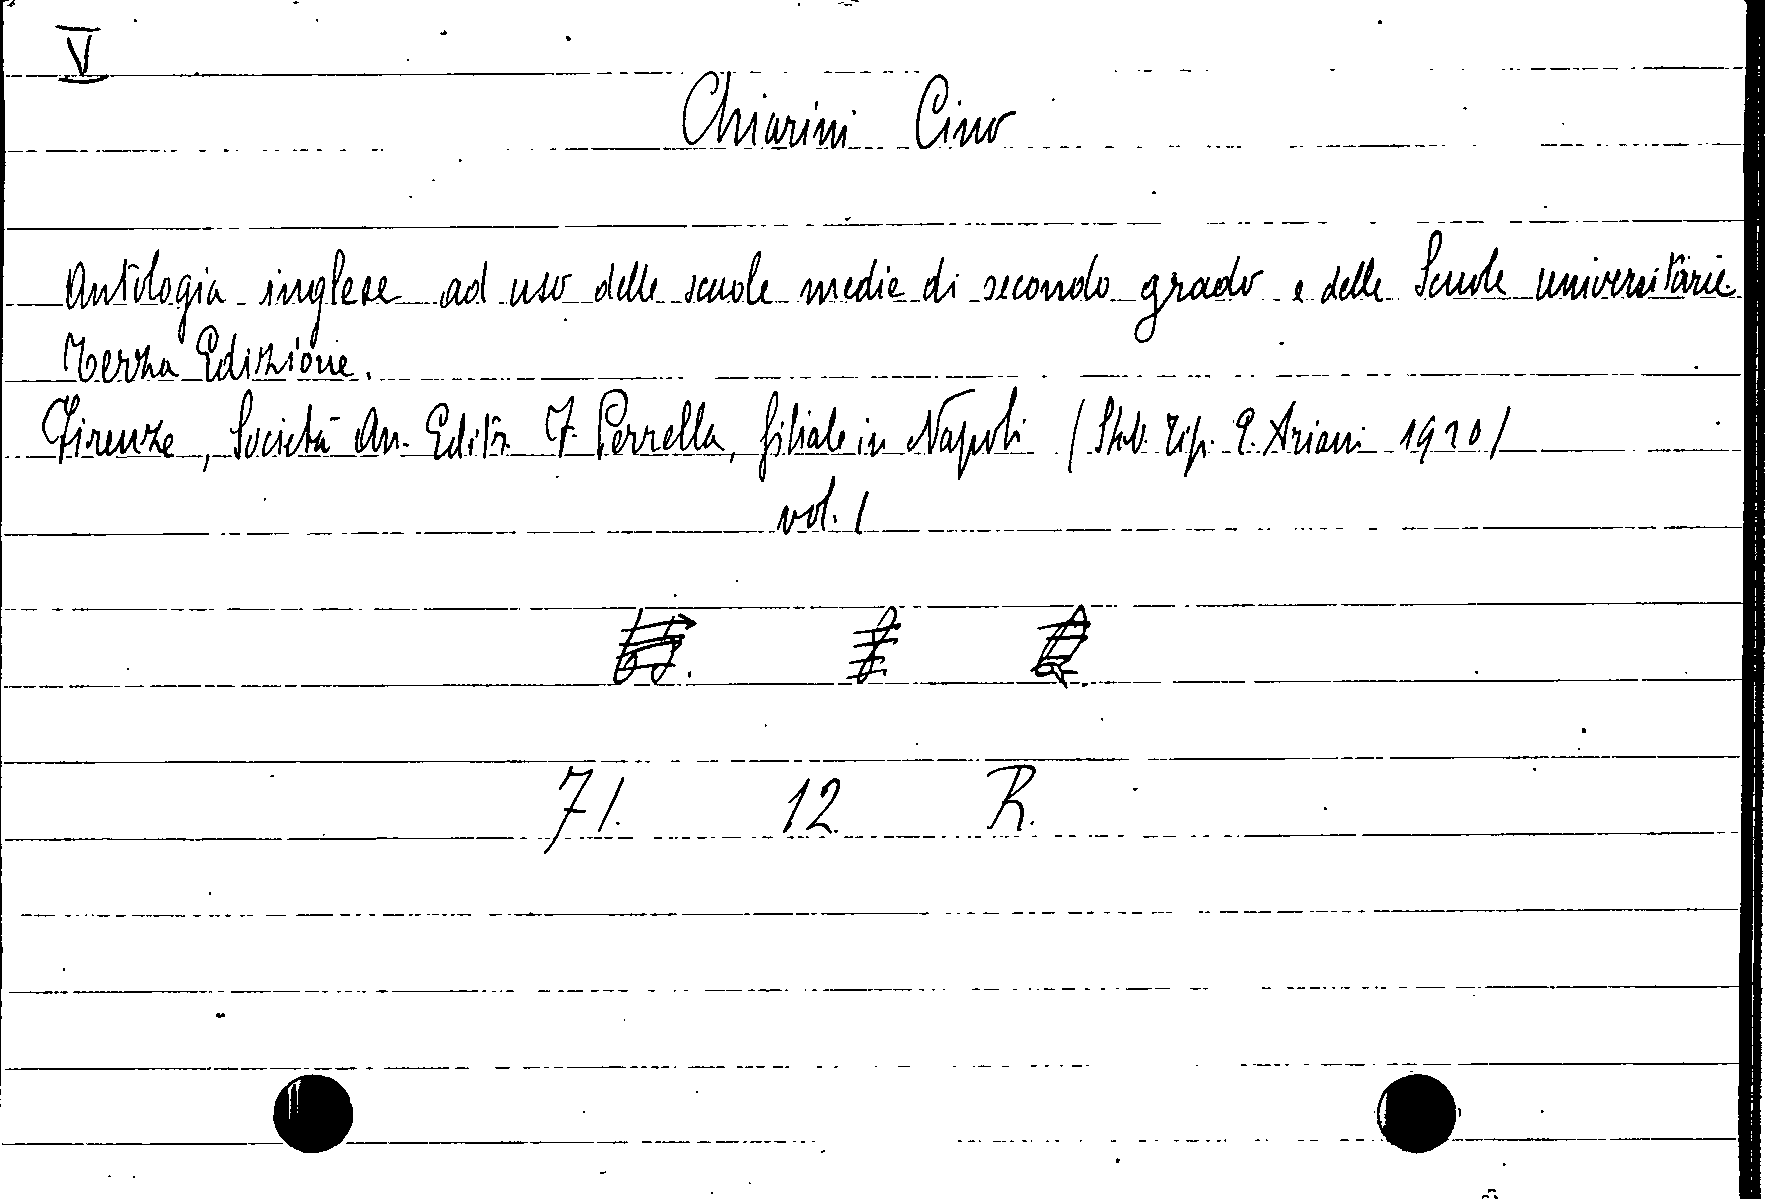 V
Chiarini Cino
Antologia inglese ad uso delle scuole medie di secondo grado e delle Scuole universitarie.
Terza Edizione.
Firenze, Società An. Editr. F. Perrella, filiale in Napoli (Stab. Tip. E. Ariani 1920)
vol. 1
71. 12. R.